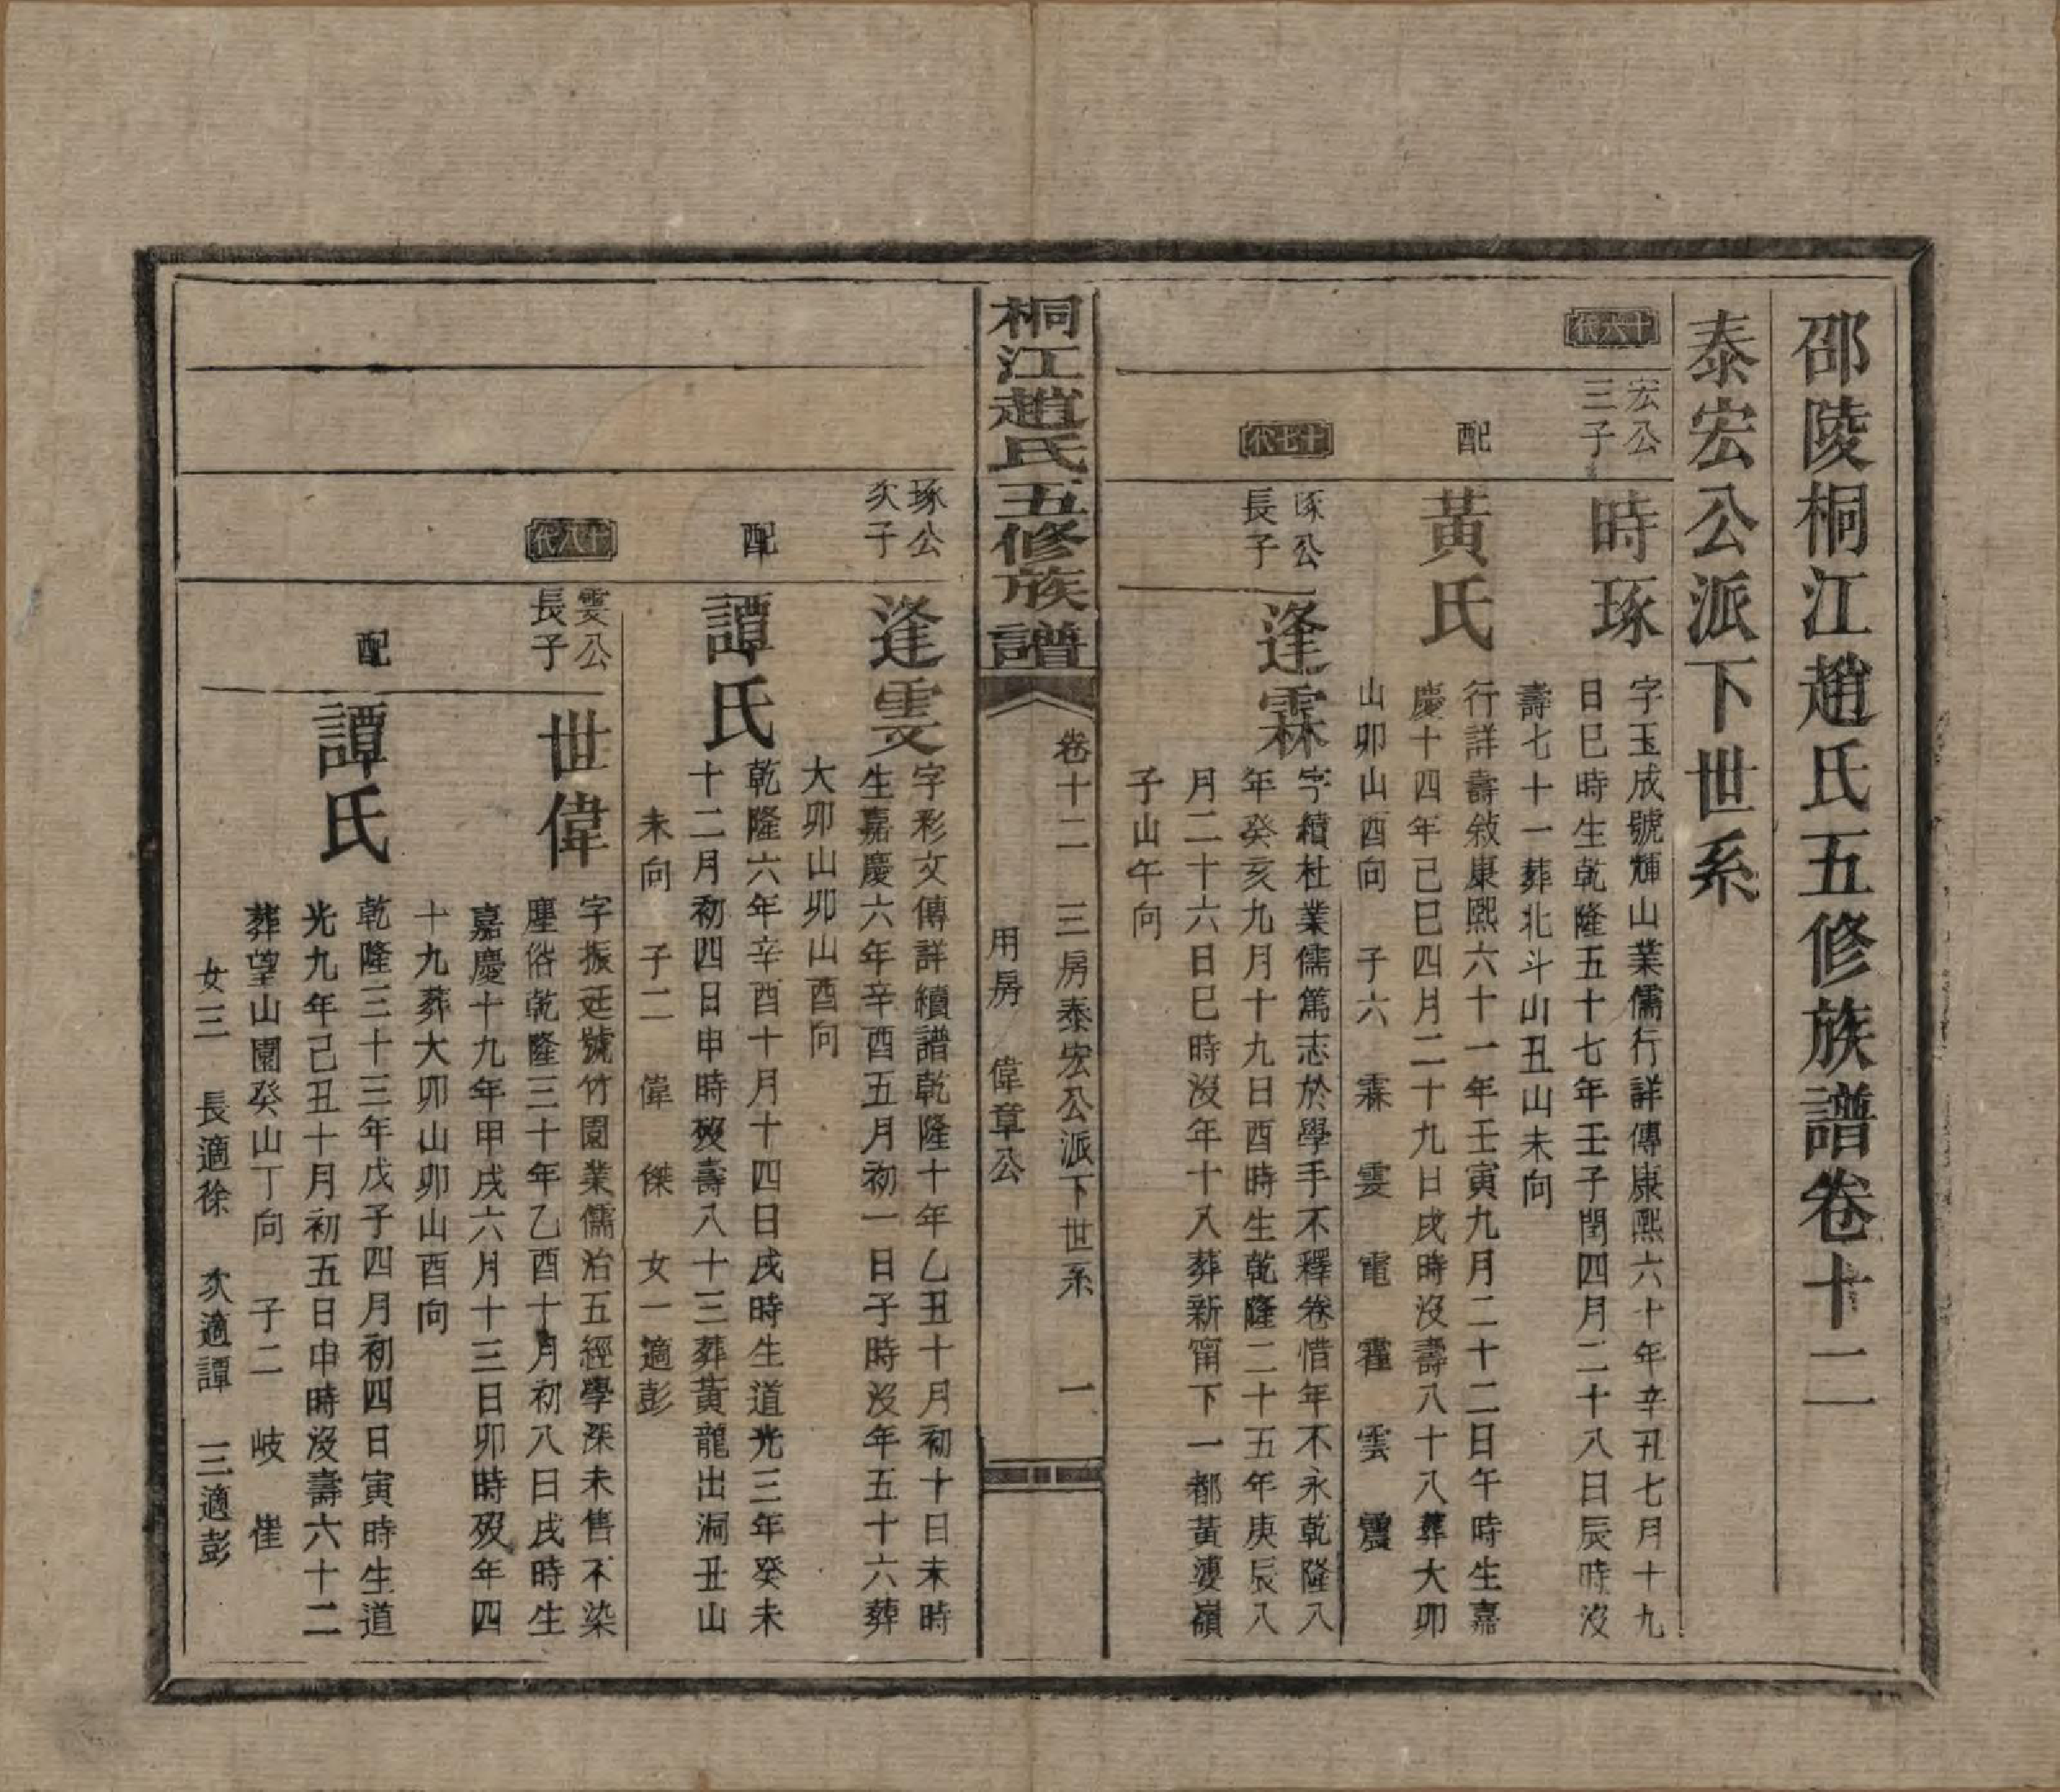 邵陵桐江趙氏五修族譜卷十二
泰宏公派下世系
十六代
宏公
三子
時琢
字玉成號輝山業儒行詳傳康熙六十年辛丑七月十九
日巳時生乾隆五十七年壬子閏四月二十八日辰時沒
壽七十一葬北斗山丑山未向
配
黃氏
行詳壽敘康熙六十一年壬寅九月二十二日午時生嘉
慶十四年己巳四月二十九日戌時沒壽八十八葬大卯
山卯山酉向 子六 霖 雯 電 霍 雲 震
十七代
琢公
長子
逢霖
字續杜業儒篤志於學手不釋卷惜年不永乾隆八
年癸亥九月十九日酉時生乾隆二十五年庚辰八
月二十六日巳時沒年十八葬新甯下一都黃婆嶺
子山午向
桐江趙氏五修族譜
卷十二 三房泰宏公派下世系 一
用房 偉章公
琢公
次子
逢雯
字彩文傳詳續譜乾隆十年乙丑十月初十日未時
生嘉慶六年辛酉五月初一日子時沒年五十六葬
大卯山卯山酉向
配
譚氏
乾隆六年辛酉十月十四日戌時生道光三年癸未
十二月初四日申時歿壽八十三葬黃龍出洞丑山
未向 子二 偉 傑 女一適彭
十八代
雯公
長子
世偉
字振廷號竹園業儒治五經學深未售不染
塵俗乾隆三十年乙酉十月初八日戌時生
嘉慶十九年甲戌六月十三日卯時歿年四
十九葬大卯山卯山酉向
配
譚氏
乾隆三十三年戊子四月初四日寅時生道
光九年己丑十月初五日申時沒壽六十二
葬望山園癸山丁向 子二 岐 崔
女三 長適徐 次適譚 三適彭